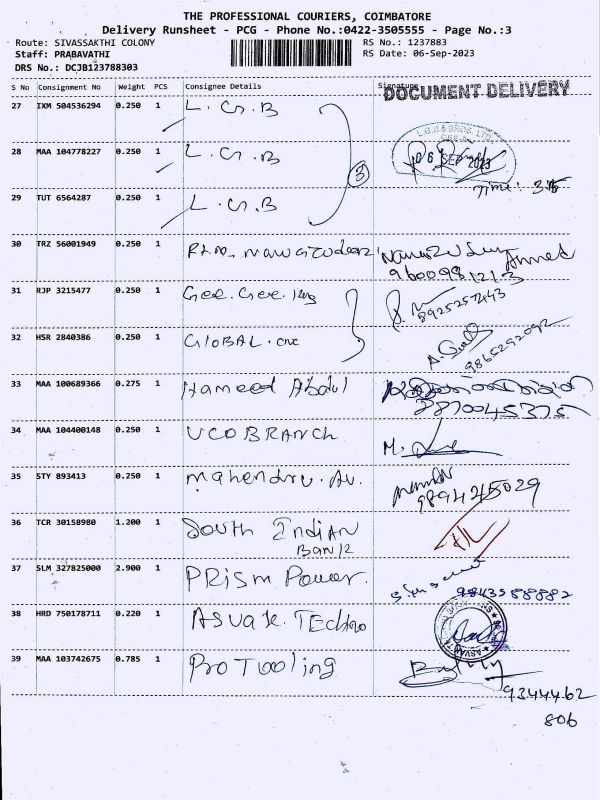 THE PROFESSIONAL COURIERS, COIMBATORE
Delivery Runsheet - PCG - Phone No.:0422-3505555 - Page No.:3
Route: SIVASSAKTHI COLONY RS No.: 1237883
Staff: PRABAVATHI RS Date: 06-Sep-2023
DRS No.: DCJB123788303
S No Consignment No Weight PCS Consignee Details Signature
DOCUMENT DELIVERY
27 IXM 504536294 0.250 1 L.G.B
L.G.B & BROS. LTD.
28 MAA 104778227 0.250 1 L.G.B
06 SEP 2023
3
Time:
29 TUT 6564287 0.250 1 L.G.B
30 TRZ 56001949 0.250 1
Ahmed
9600981213
31 RJP 3215477 0.250 1 Gee.Gee.
8925257443
32 HSR 2840386 0.250 1 GlOBAL.cnc
9865292092
33 MAA 100689366 0.275 1 Hameed Abdul
8870045375
34 MAA 104400148 0.250 1 UCO BRANCH
M.
35 STY 893413 0.250 1 Mahendra.Au.
9894245029
36 TCR 30158980 1.200 1 South Indian
Bank
37 SLM 327825000 2.900 1 PRism Power.
9843588882
38 HRD 750178711 0.220 1 Asvak.TEchno
39 MAA 103742675 0.785 1 ProTooling
9344462
806